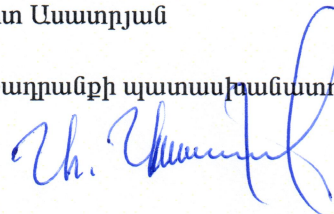 տ Ասատրյան
ադրանքի պատասխանատո